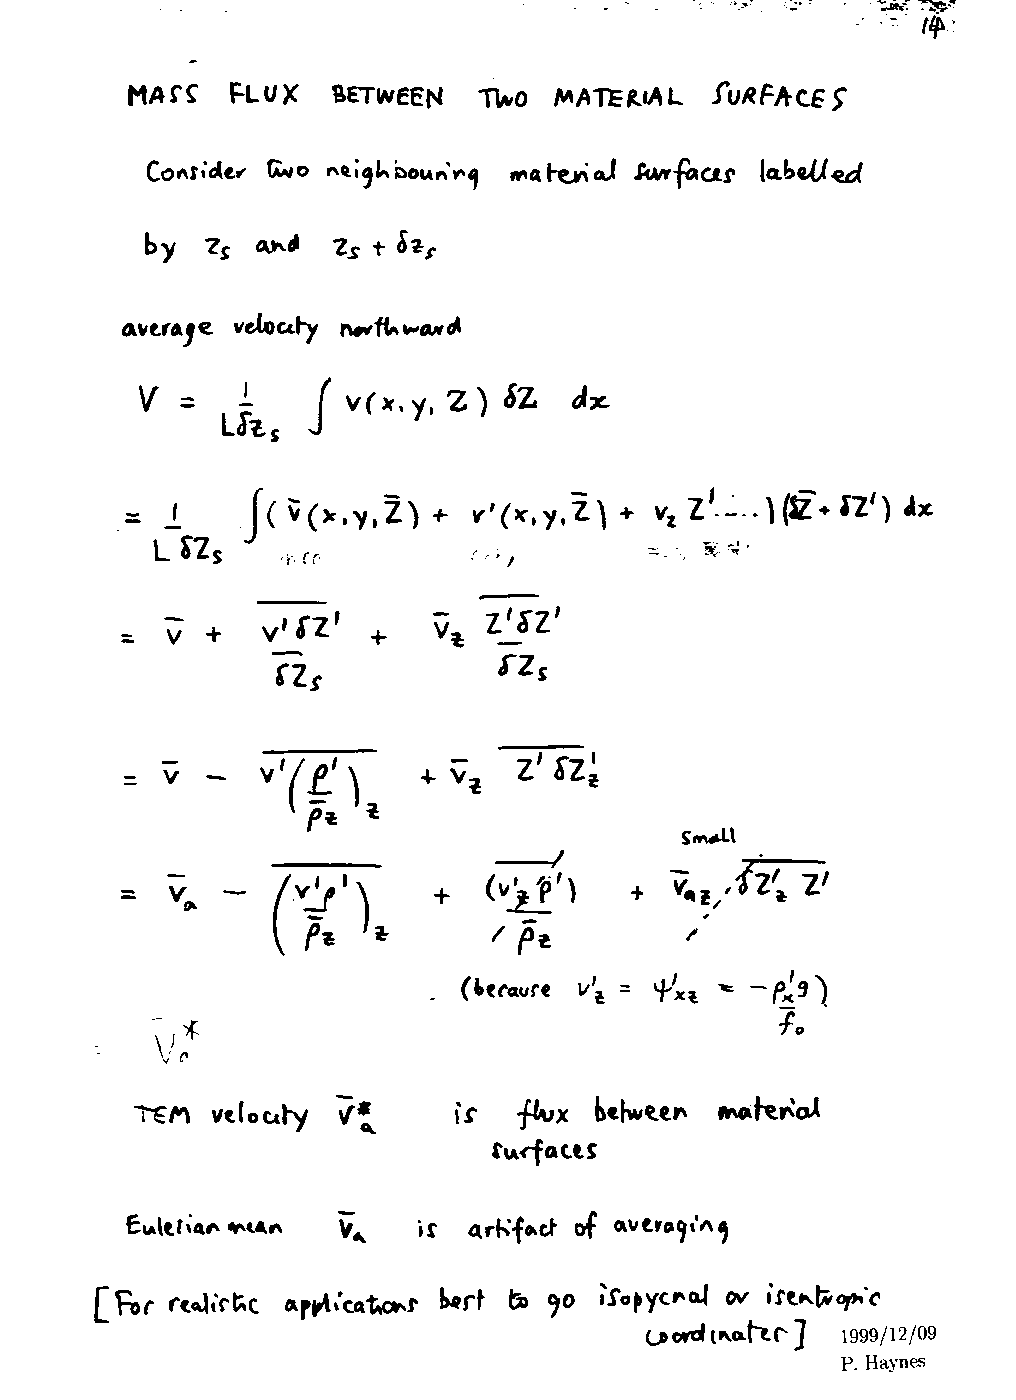 14
MASS FLUX BETWEEN TWO MATERIAL SURFACES
Consider two neighbouring material surfaces labelled
by z_s and z_s + δz_s
average velocity northward
V = 1/(Lδz_s) ∫ v(x, y, Z) δZ dx
= 1/(L δZ_s) ∫ ( v̄(x, y, Z̄) + v'(x, y, Z̄) + v_z Z' .... ) (δZ̄ + δZ') dx
= v̄ + \overline{v'δZ'}/δZ_s + v̄_z \overline{Z'δZ'}/δZ_s
= v̄ − \overline{v'(ρ'/ρ̄_z)_z} + v̄_z \overline{Z' δZ'_z}
small
= v̄_a − \overline{(v'ρ'/ρ̄_z)_z} + \overline{(v'_z ρ')}/ρ̄_z + v̄_{az} \overline{δZ'_z Z'}
(because v'_z = ψ'_{xz} = −ρ'_x g/f_0)
V̄_a*
TEM velocity v̄_a* is flux between material
surfaces
Eulerian mean v̄_a is artifact of averaging
[For realistic applications best to go isopycnal or isentropic
coordinates]
1999/12/09
P. Haynes